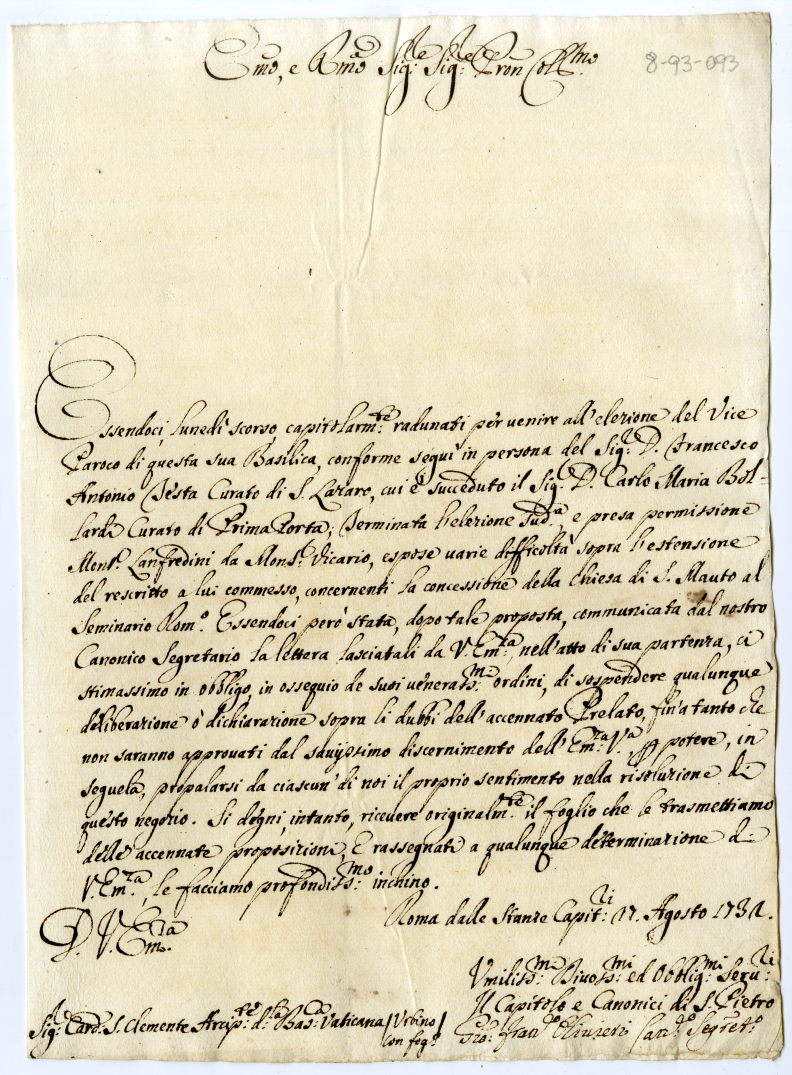 Emo, e Rmo Sig.re Sig.re Pron Coll.mo
8-93-093
Essendoci, lunedì scorso, capitolarm.te radunati per venire all'elezione del Vice
Paroco di questa sua Basilica, conforme seguì in persona del Sig.r D. Francesco
Antonio Testa Curato di S. Lazaro, cui è succeduto il Sig.r D. Carlo Maria Bol-
lardi Curato di Prima Porta; Terminata l'elezione sud.a, e presa permissione
Mons.r Lanfredini da Mons.r Vicario, espose varie difficoltà sopra l'estensione
del rescritto a lui commesso, concernenti la concessione della Chiesa di S. Mauto al
Seminario Rom.o Essendoci però stata, dopo tale proposta, communicata dal nostro
Canonico Segretario la lettera lasciatali da V. Em.za, nell'atto di sua partenza, ci
stimassimo in obbligo, in ossequio de suoi veneratiss.mi ordini, di sospendere qualunque
deliberazione ò dichiarazione sopra li dubbi dell'accennato Prelato, fin'a tanto che
non saranno approvati dal savijssimo discernimento dell'Em.za V.a potere, in
seguela, propalarsi da ciascun di noi il proprio sentimento nella risoluzione di
questo negozio. Si degni, intanto, ricevere originalm.te il foglio che le trasmettiamo
delle accennate proposizioni, E rassegnati a qualunque determinazione di
V. Em.za, le facciamo profondiss.mo inchino.
D. V. Em.za
Roma dalle Stanze Capit.li 17. Agosto 1732.
Umiliss.mi Divotiss.mi ed Obblig.mi Serv.ri
Il Capitolo e Canonici di S. Pietro
Sig.r Card. S. Clemente Arcip.te d.la Bas.ca Vaticana / Urbino / con fog.o
Gio: Fran.co Olivieri Can.co Segret.o